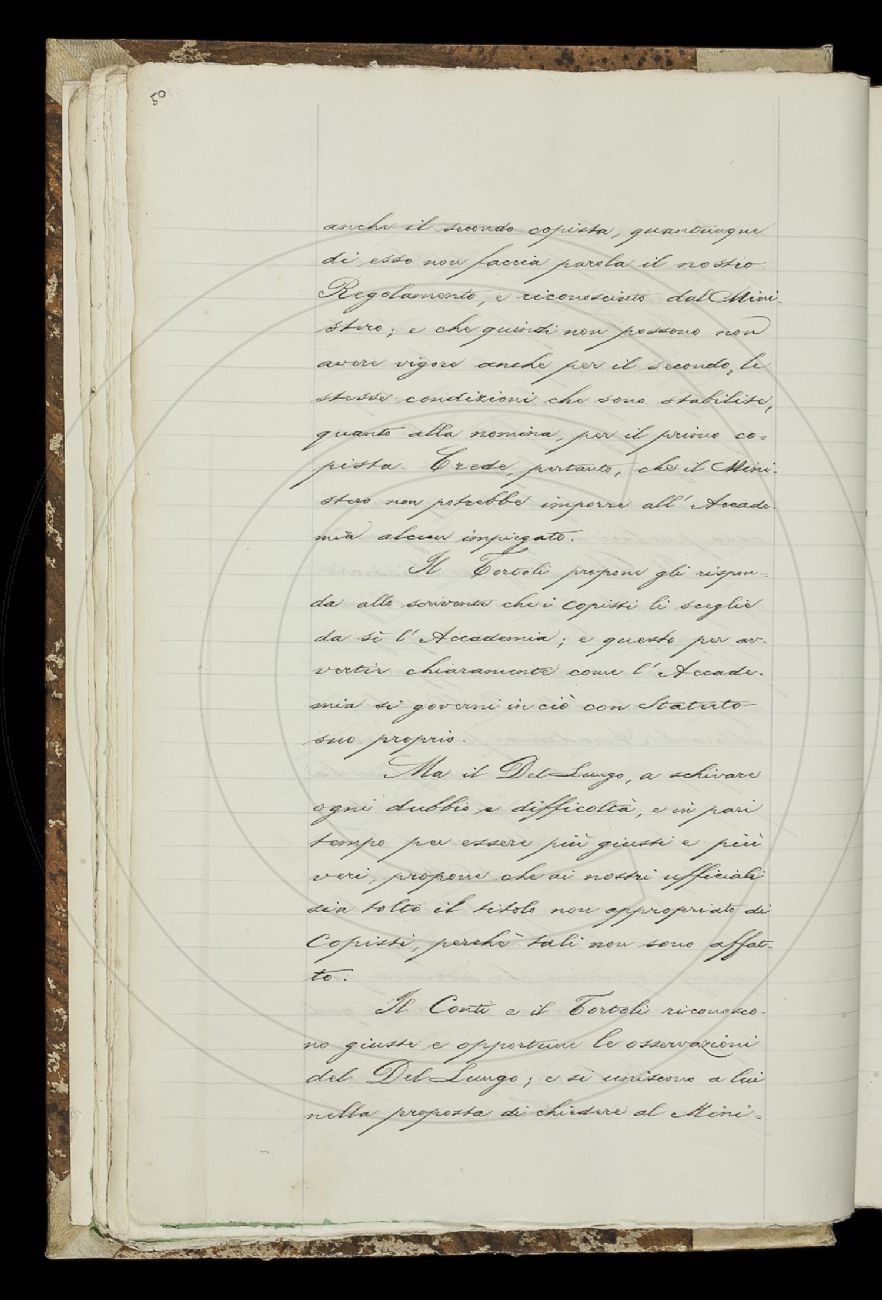 50
anche il secondo copista, quantunque
di esso non faccia parola il nostro
Regolamento, è riconosciuto dal Mini-
stero; e che quindi non possono non
avere vigore anche per il secondo, le
stesse condizioni che sono stabilite,
quanto alla nomina, per il primo co-
pista. Crede, pertanto, che il Mini-
stero non potrebbe imporre all'Accade-
mia alcun impiegato.
Il Tortoli propone gli rispon-
da allo scrivente che i Copisti li sceglie
da sè l'Accademia; e questo per av-
vertir chiaramente come l'Accade-
mia si governi in ciò con Statuto
suo proprio.
Ma il Del Lungo, a schivare
ogni dubbio e difficoltà, e in pari
tempo per essere più giusti e più
veri, propone che ai nostri ufficiali
sia tolto il titolo non appropriato di
Copisti, perchè tali non sono affat-
to.
Il Conti e il Tortoli riconosco-
no giuste e opportune le osservazioni
del Del Lungo; e si uniscono a lui
nella proposta di chiedere al Mini-